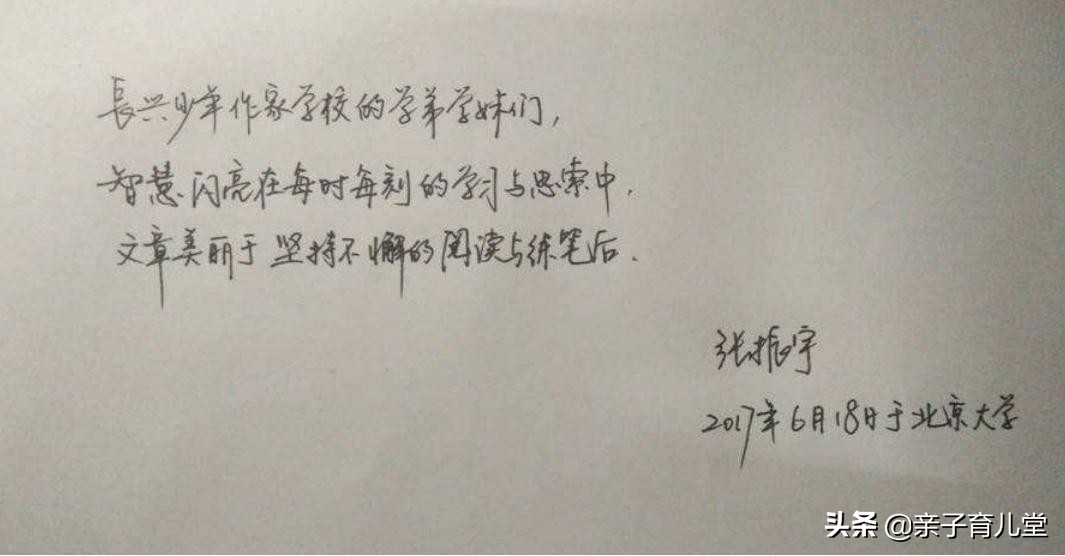 長兴少年作家学校的学弟学妹们,
智慧闪亮在每时每刻的学习与思索中.
文章美丽于坚持不懈的阅读与练笔后.
张振宇
2017年6月18日于北京大学
头条 @亲子育儿堂